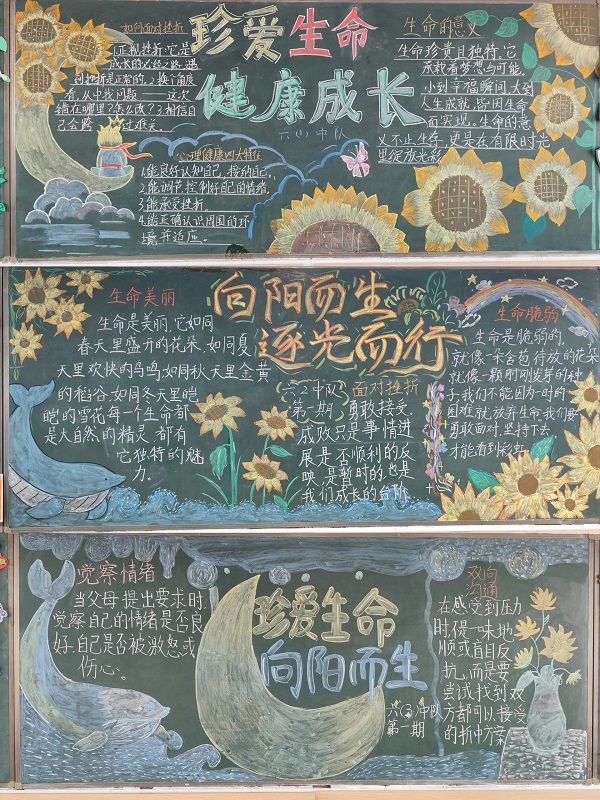 如何面对挫折
1.正视挫折:它是
成长的必经之路,遇
到挫折是正常的。2.换个角度
看,从中找问题——这次
错在哪里?怎么改?3.相信自
己会跨过难关。
珍爱生命
健康成长
六(1)中队
心理健康四大特征
1.能良好认知自己,接纳自己。
2.能调节控制好自己的情绪。
3.能承受挫折。
4.能正确认识周围的环
境并适应。
生命的意义
生命珍贵且独特,它
承载着梦想与可能。
小到幸福瞬间,大到
人生成就,皆因生命
而实现。生命的意
义不止生存,更是在有限时光
里绽放光彩。
生命美丽
生命是美丽,它如同
春天里盛开的花朵,如同夏
天里欢快的鸟鸣如同秋天里金黄
的稻谷,如同冬天里皑
皑的雪花每一个生命都
是大自然的精灵,都有
它独特的魅
力。
向阳而生
逐光而行
六(2)中队
第一期
面对挫折
勇敢接受
成败只是事情进
展是否顺利的反
映,是暂时的,也是
我们成长的台阶
生命脆弱
生命是脆弱的,
就像一朵含苞待放的花朵
就像一颗刚刚发芽的种
子我们不能因为一时的
困难就放弃生命我们要
勇敢面对,坚持下去
才能看到彩虹
觉察情绪
当父母提出要求时,
觉察自己的情绪是否良
好,自己是否被激怒或
伤心。
珍爱生命
向阳而生
六(3)中队
第一期
双向
沟通
在感受到压力
时,不是一味地
顺或盲目反
抗,而是要
尝试找到双
方都可以接受
的折中方案